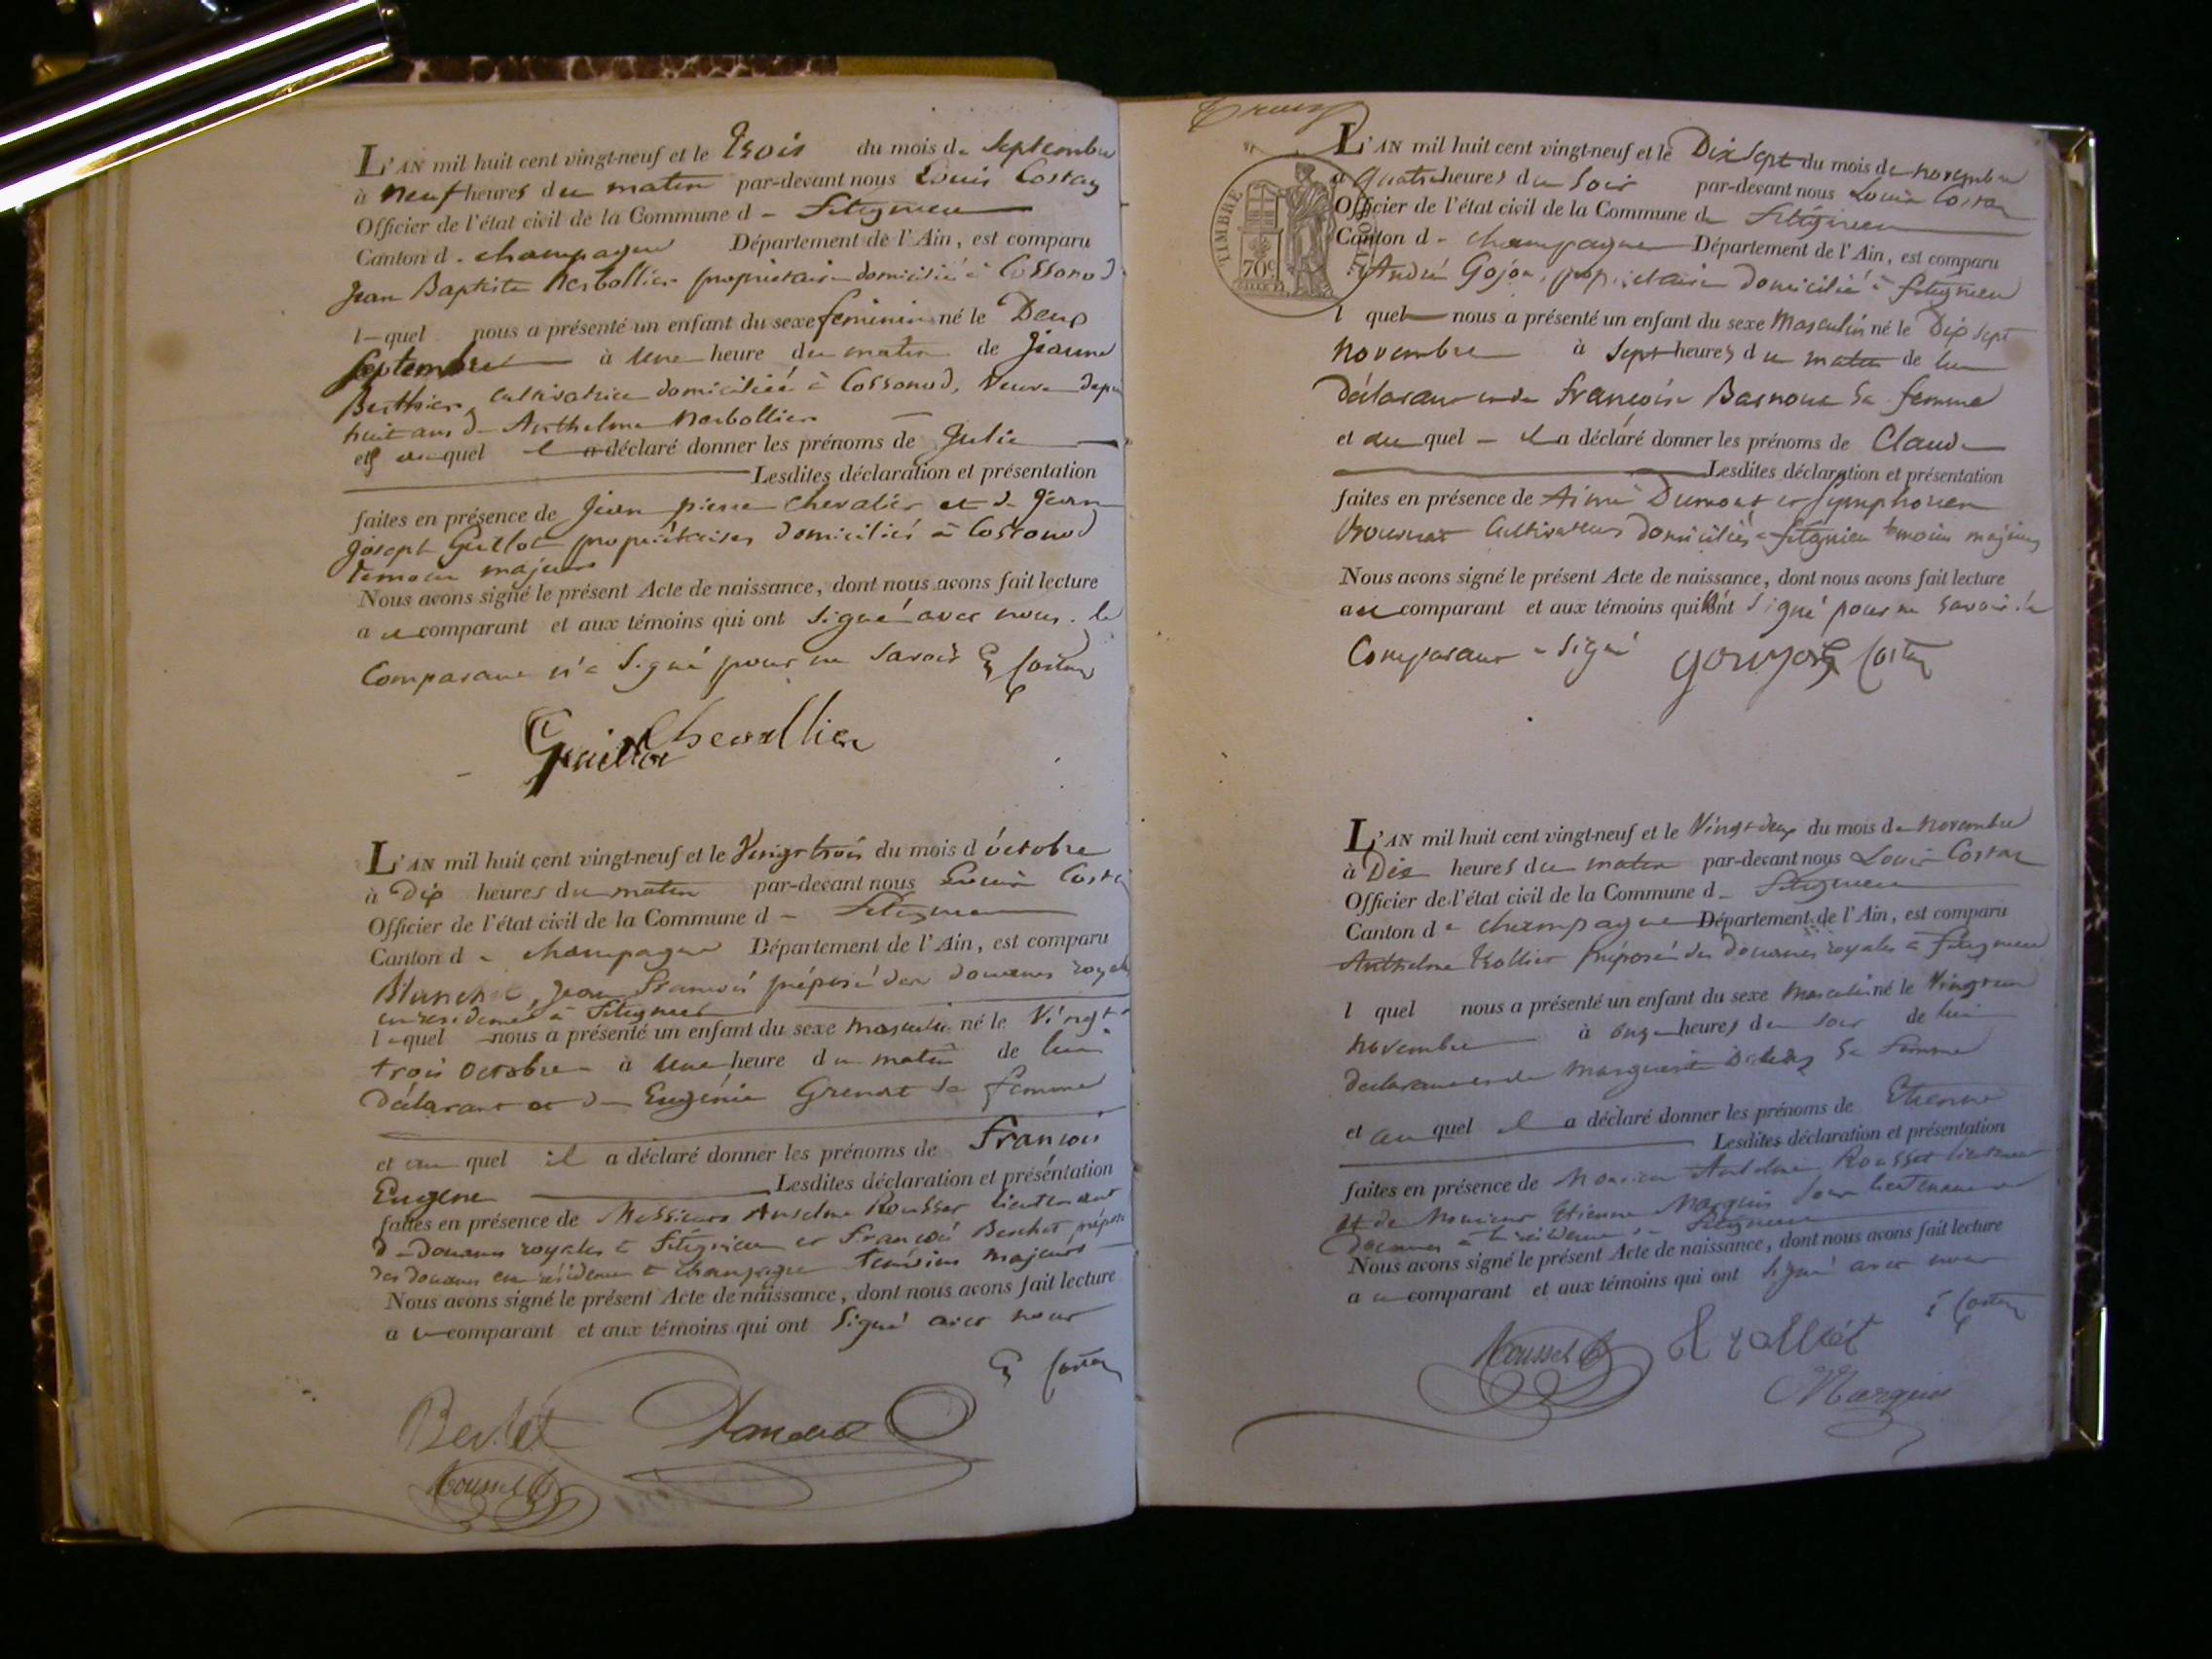 L'AN mil huit cent vingt-neuf et le Trois du mois de Septembre
à neuf heures du matin par-devant nous Louis Costaz
Officier de l'état civil de la Commune de Fitignieu
Canton de champagne Département de l'Ain, est comparu
Jean Baptiste Nerbollier propriétaire domicilié à Cossonod
lequel nous a présenté un enfant du sexe feminin né le Deux
Septembre à une heure du matin de Jeanne
Berthier, cultivatrice domiciliée à Cossonod, veuve depuis
huit ans de Anthelme Nerbollier
et quel il a déclaré donner les prénoms de Julie
Lesdites déclaration et présentation
faites en présence de Jean pierre Chevalier et de Jean
Joseph Guillot propriétaires domiciliés à Cossonod
temoins majeurs
Nous avons signé le présent Acte de naissance, dont nous avons fait lecture
au comparant et aux témoins qui ont Signé avec nous. le
Comparant n'a Signé pour ne Savoir Costaz
Chevallier
Guillot
L'AN mil huit cent vingt-neuf et le Vingt trois du mois d'octobre
à Dix heures du matin par-devant nous Louis Costaz
Officier de l'état civil de la Commune de Fitignieu
Canton de champagne Département de l'Ain, est comparu
Blanchet, Jean François préposé des douanes royales
en residence à Fitignieu
lequel nous a présenté un enfant du sexe masculin né le Vingt
trois octobre à une heure du matin de lui
Déclarant et de Eugénie Grenat Sa femme
et au quel il a déclaré donner les prénoms de François
Eugene Lesdites déclaration et présentation
faites en présence de Messieurs Anselme Rousset lieutenant
de Douanes royales à Fitignieu et François préposé
des douanes en résidence à champagne temoins majeurs
Nous avons signé le présent Acte de naissance, dont nous avons fait lecture
au comparant et aux témoins qui ont Signé avec nous
Costaz
Rousset
TIMBRE ROYAL
70c
L'AN mil huit cent vingt-neuf et le Dix Sept du mois de novembre
à quatre heures du Soir par-devant nous Louis Costaz
Officier de l'état civil de la Commune de Fitignieu
Canton de champagne Département de l'Ain, est comparu
André Gojon, propriétaire domicilié à fitignieu
lequel nous a présenté un enfant du sexe Masculin né le Dix Sept
Novembre à Sept heures du matin de lui
Déclarant et de Françoise Sa femme
et au quel il a déclaré donner les prénoms de Claude
Lesdites déclaration et présentation
faites en présence de Aimé Dumont et Symphorien
Cultivateurs domiciliés à fitignieu temoins majeurs
Nous avons signé le présent Acte de naissance, dont nous avons fait lecture
au comparant et aux témoins qui n'ont Signé pour ne Savoir. le
Comparant a Signé Costaz
L'AN mil huit cent vingt-neuf et le Vingt deux du mois de novembre
à Dix heures du matin par-devant nous Louis Costaz
Officier de l'état civil de la Commune de Fitignieu
Canton de champagne Département de l'Ain, est comparu
Anthelme Trollier préposé des douanes royales à fitignieu
lequel nous a présenté un enfant du sexe Masculin né le Vingt un
Novembre à onze heures du Soir de lui
declarant et de Marguerite Sa femme
et au quel il a déclaré donner les prénoms de Etienne
Lesdites déclaration et présentation
faites en présence de Monsieur Anselme Rousset lieutenant
et de Monsieur Etienne Marquis Sous lieutenant
Douanes à la résidence de Fitignieu
Nous avons signé le présent Acte de naissance, dont nous avons fait lecture
au comparant et aux témoins qui ont Signé avec nous
Costaz
Rousset
Marquis